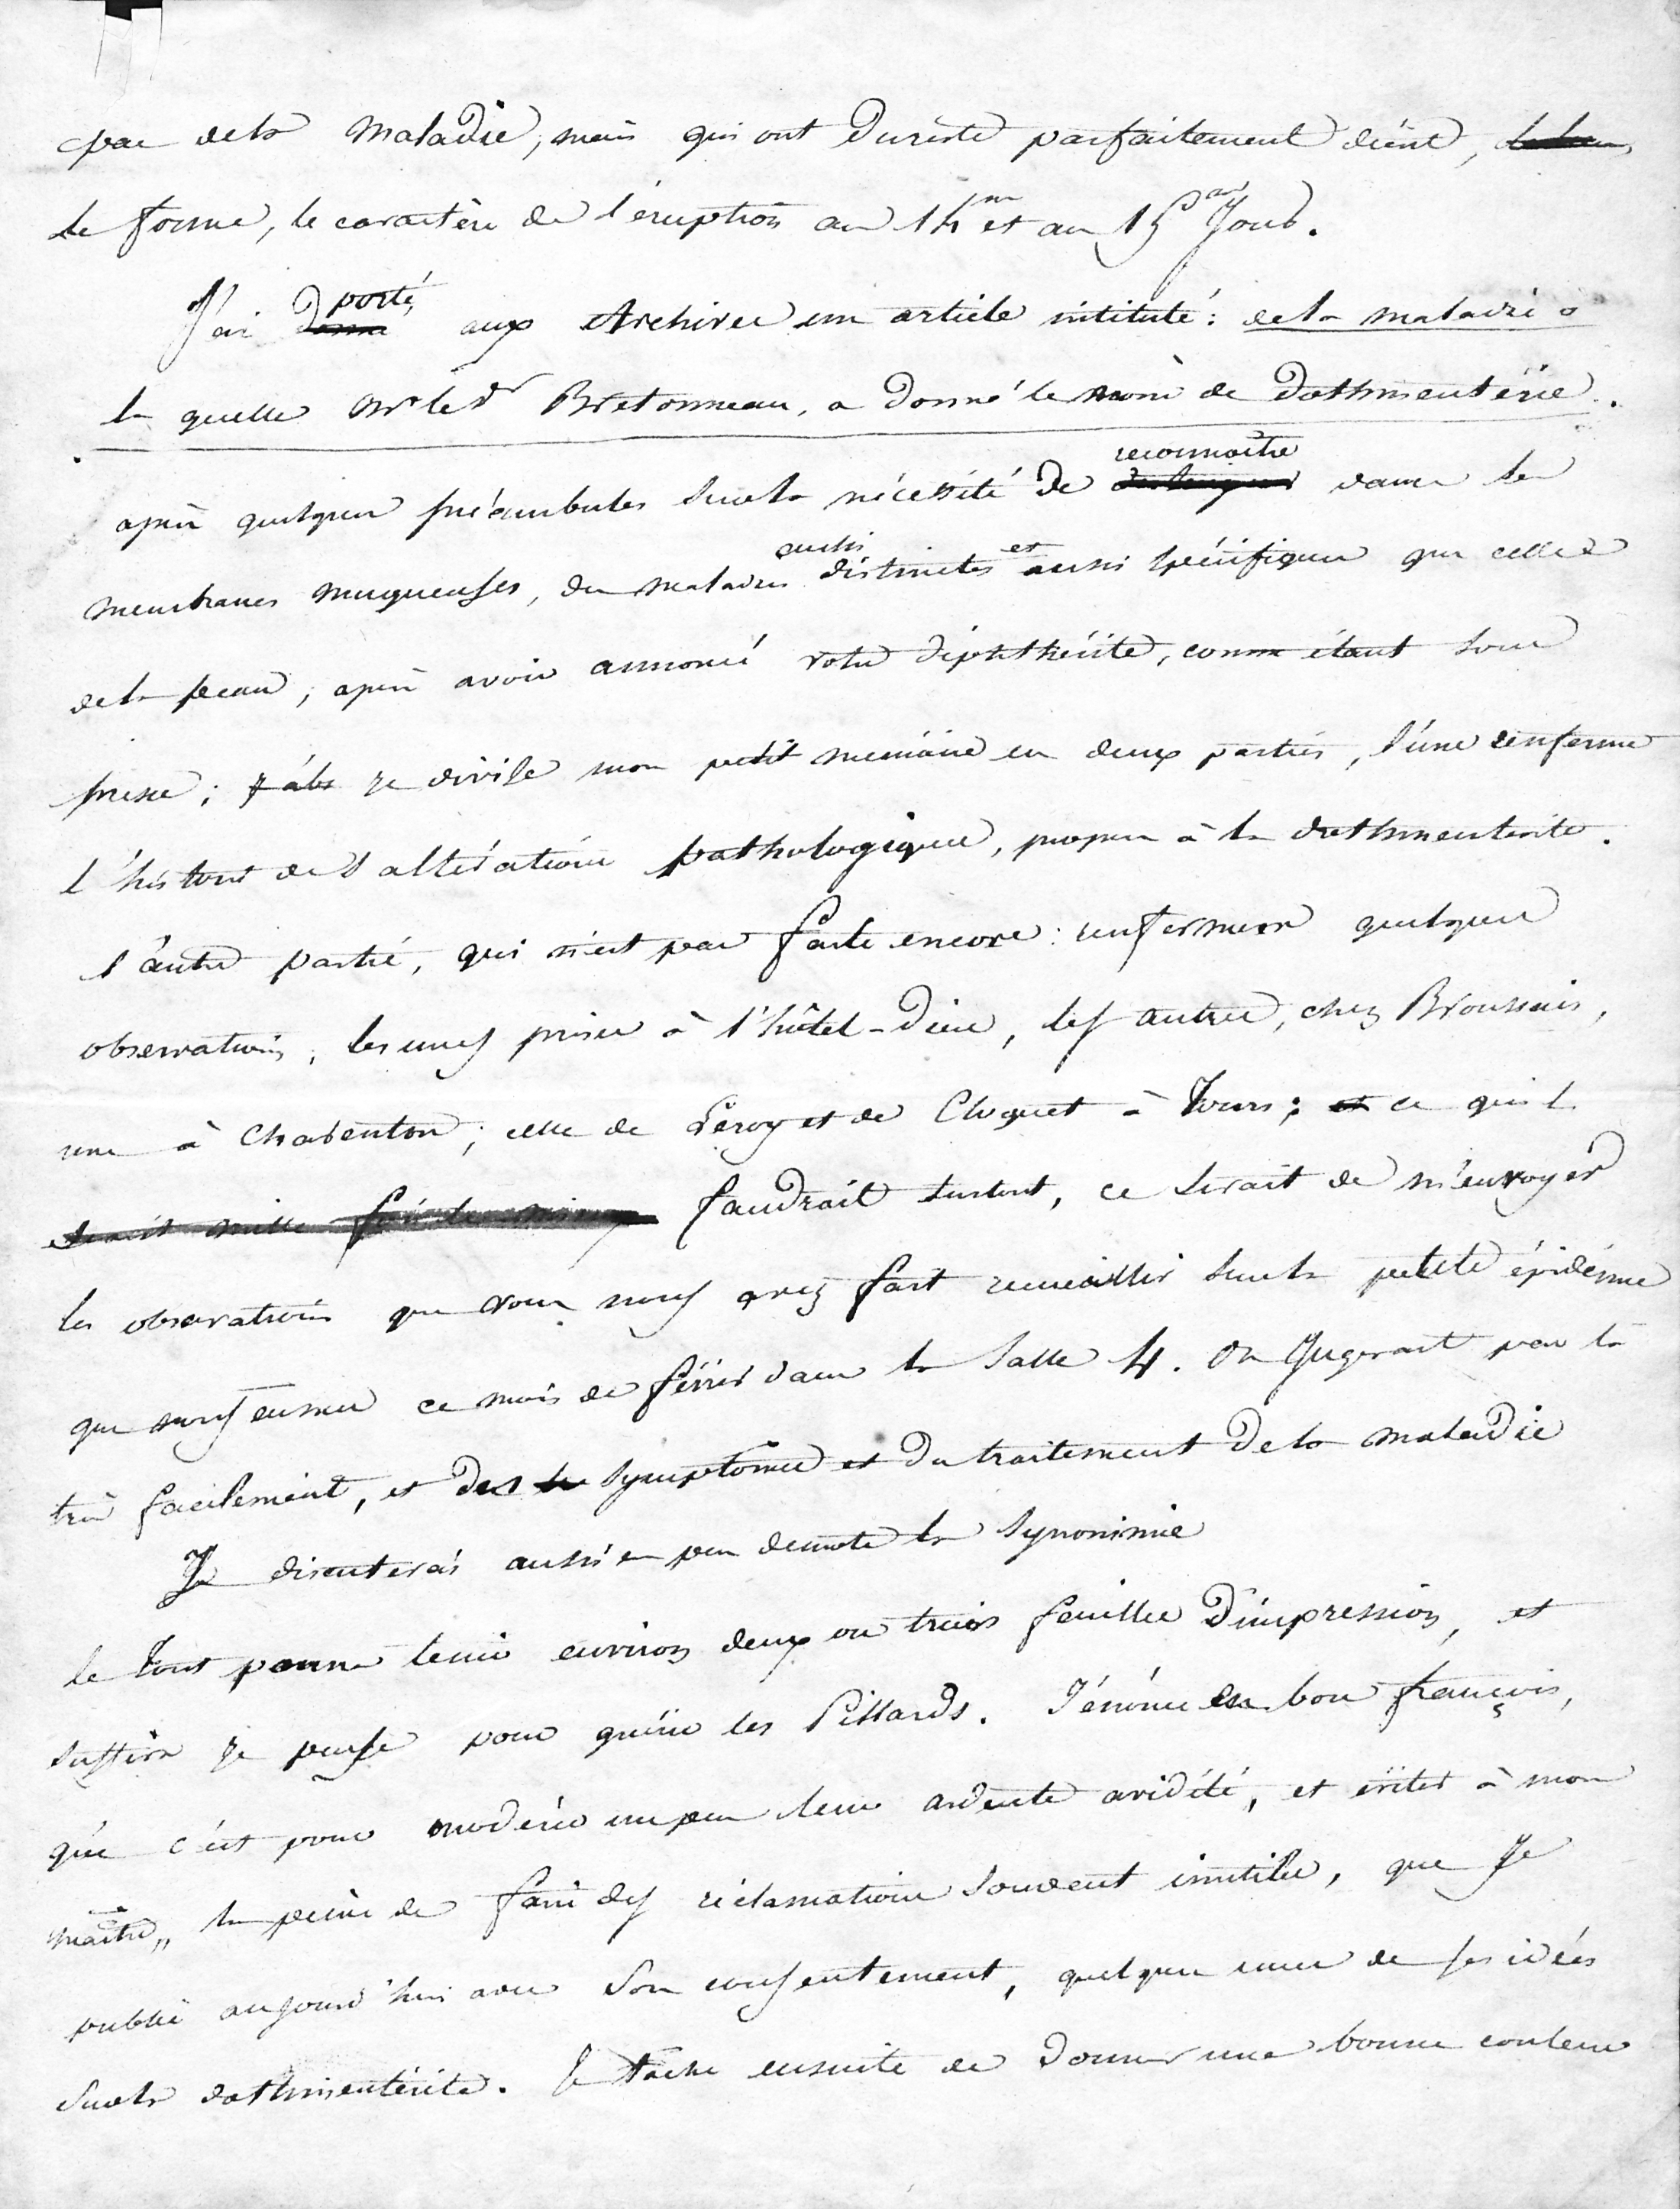 pas de la maladie, mais qui ont du reste parfaitement décrit,
la forme, le caractère de l'éruption au 14me et au 15me Jour.
J'ai porté aux Archives un article intitulé : de la maladie à
la quelle Mr le Dr Bretonneau, a donné le nom de Dothinentérie.
après quelques préambules sur la nécessité de reconnaître dans les
membranes muqueuses, des maladies aussi distinctes et aussi spécifiques que celles
de la peau ; après avoir annoncé votre diphthérite, comme étant sous
presse ; je divise mon petit mémoire en deux parties, l'une renferme
l'histoire de l'altération pathologique, propre à la dothinentérite.
l'autre partie, qui n'est pas faite encore : renfermera quelques
observations, les unes prises à l'hôtel-Dieu, les autres, chez Broussais,
une à Charenton ; celle de Leroy et de Cloquet à Tours ; ce qu'il
faudrait surtout, ce serait de m'envoyer
les observations que vous nous avez fait recueillir sur la petite épidémie
que nous eumes ce mois de février dans la Salle 4. On Jugerait par là
très facilement, et des symptomes et du traitement de la maladie
Je discuterai aussi en peu de mots la Synonimie
le tout pourra tenir environ deux ou trois feuilles D'impression, et
suffira je pense pour guérir les Pillards. J'énonce en bon françois,
que c'est pour modérer un peu leur ardente avidité, et éviter à mon
maître, la peine de faire des réclamations souvent inutiles, que Je
publie aujourd'hui avec son consentement, quelques unes de ses idées
sur la dothinentérite. Je tache ensuite de donner une bonne couleur